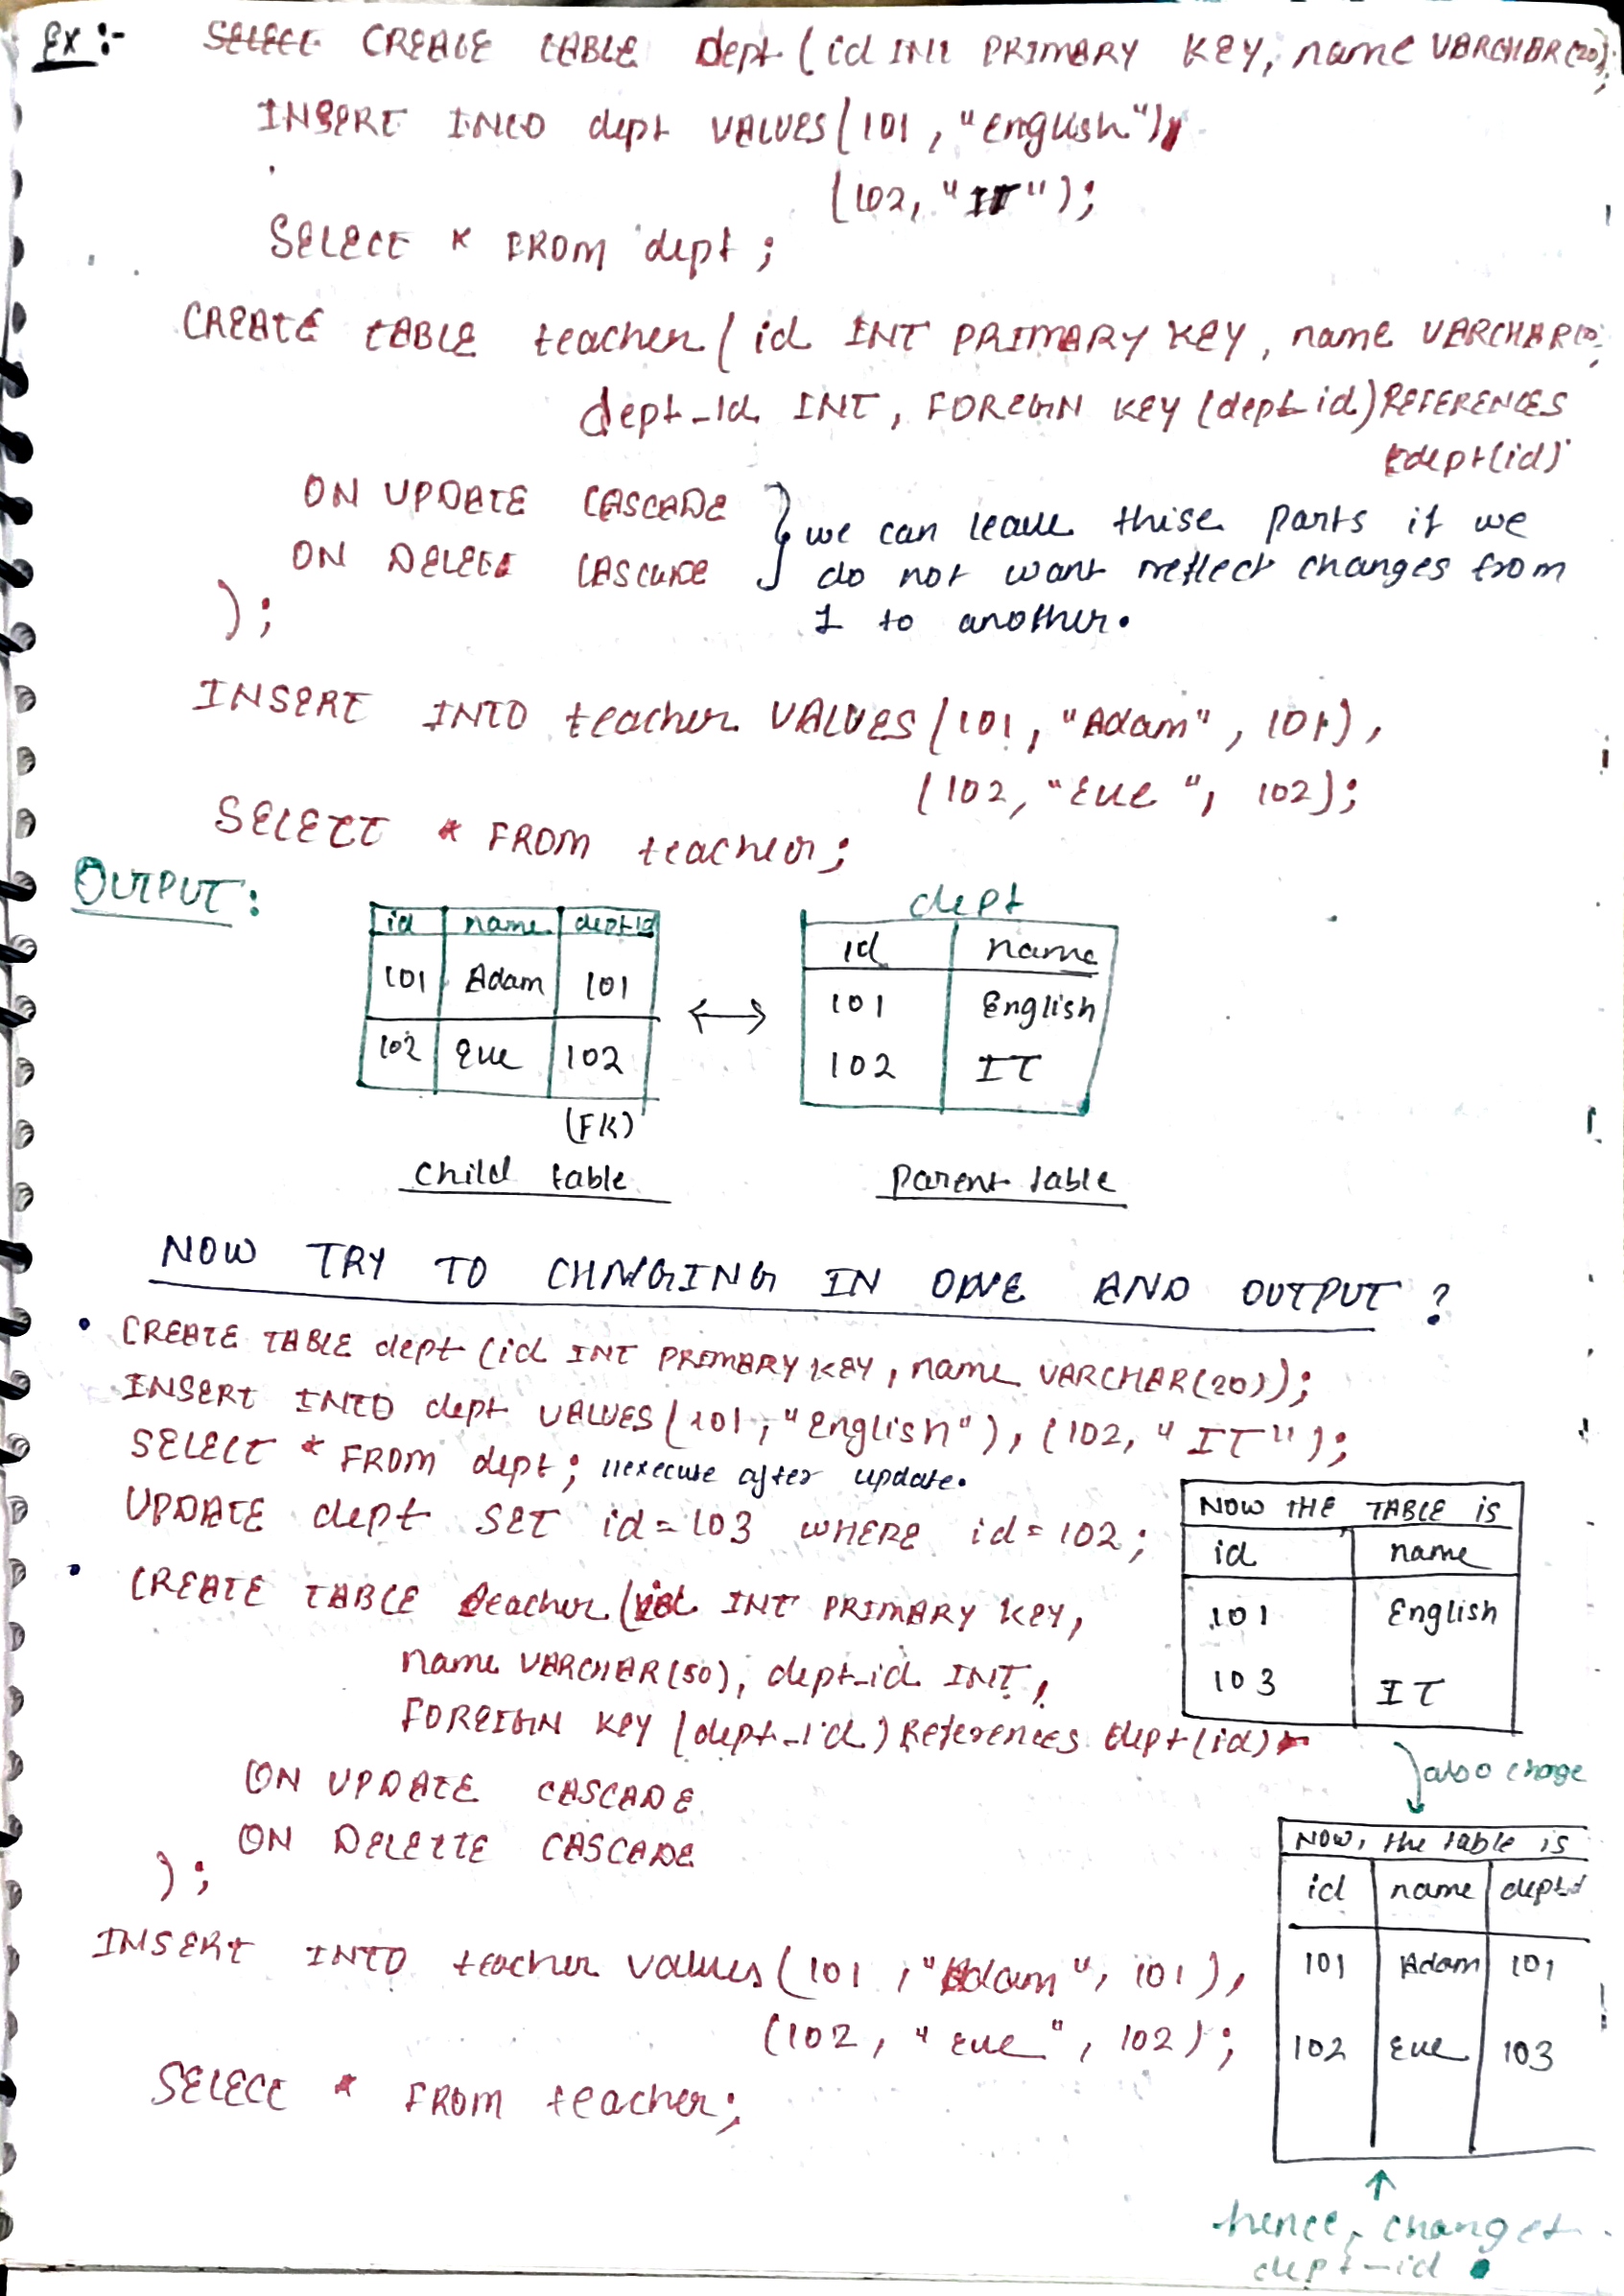 Ex :-
SELECT CREATE TABLE dept (id INT PRIMARY KEY, name VARCHAR(20);
INSERT INTO dept VALUES(101, "English"),
(102, "IT");
SELECT * FROM dept;
CREATE TABLE teacher(id INT PRIMARY KEY, name VARCHAR(50),
dept_id INT, FOREIGN KEY (dept_id) REFERENCES
dept(id)
ON UPDATE CASCADE
ON DELETE CASCADE
we can leave thise parts if we
do not want reflect changes from
1 to another.
);
INSERT INTO teacher VALUES(101, "Adam", 101),
(102, "Eve", 102);
SELECT * FROM teacher;
OUTPUT:
dept
id name deptid
id name
101 Adam 101
101 English
102 Eve 102
102 IT
(FK)
child table
Parent table
NOW TRY TO CHANGING IN ONE AND OUTPUT ?
• CREATE TABLE dept (id INT PRIMARY KEY, name VARCHAR(20));
INSERT INTO dept VALUES(101, "English"), (102, "IT");
SELECT * FROM dept; //execute after update.
UPDATE dept SET id=103 WHERE id=102;
NOW THE TABLE is
id name
101 English
103 IT
• CREATE TABLE teacher(id INT PRIMARY KEY,
name VARCHAR(50), dept_id INT,
FOREIGN KEY (dept_id) References dept(id)
ON UPDATE CASCADE
ON DELETE CASCADE
);
also change
NOW, the table is
id name deptid
101 Adam 101
102 Eve 103
INSERT INTO teacher values(101, "Adam", 101),
(102, "Eve", 102);
SELECT * FROM teacher;
hence, changet
dept-id